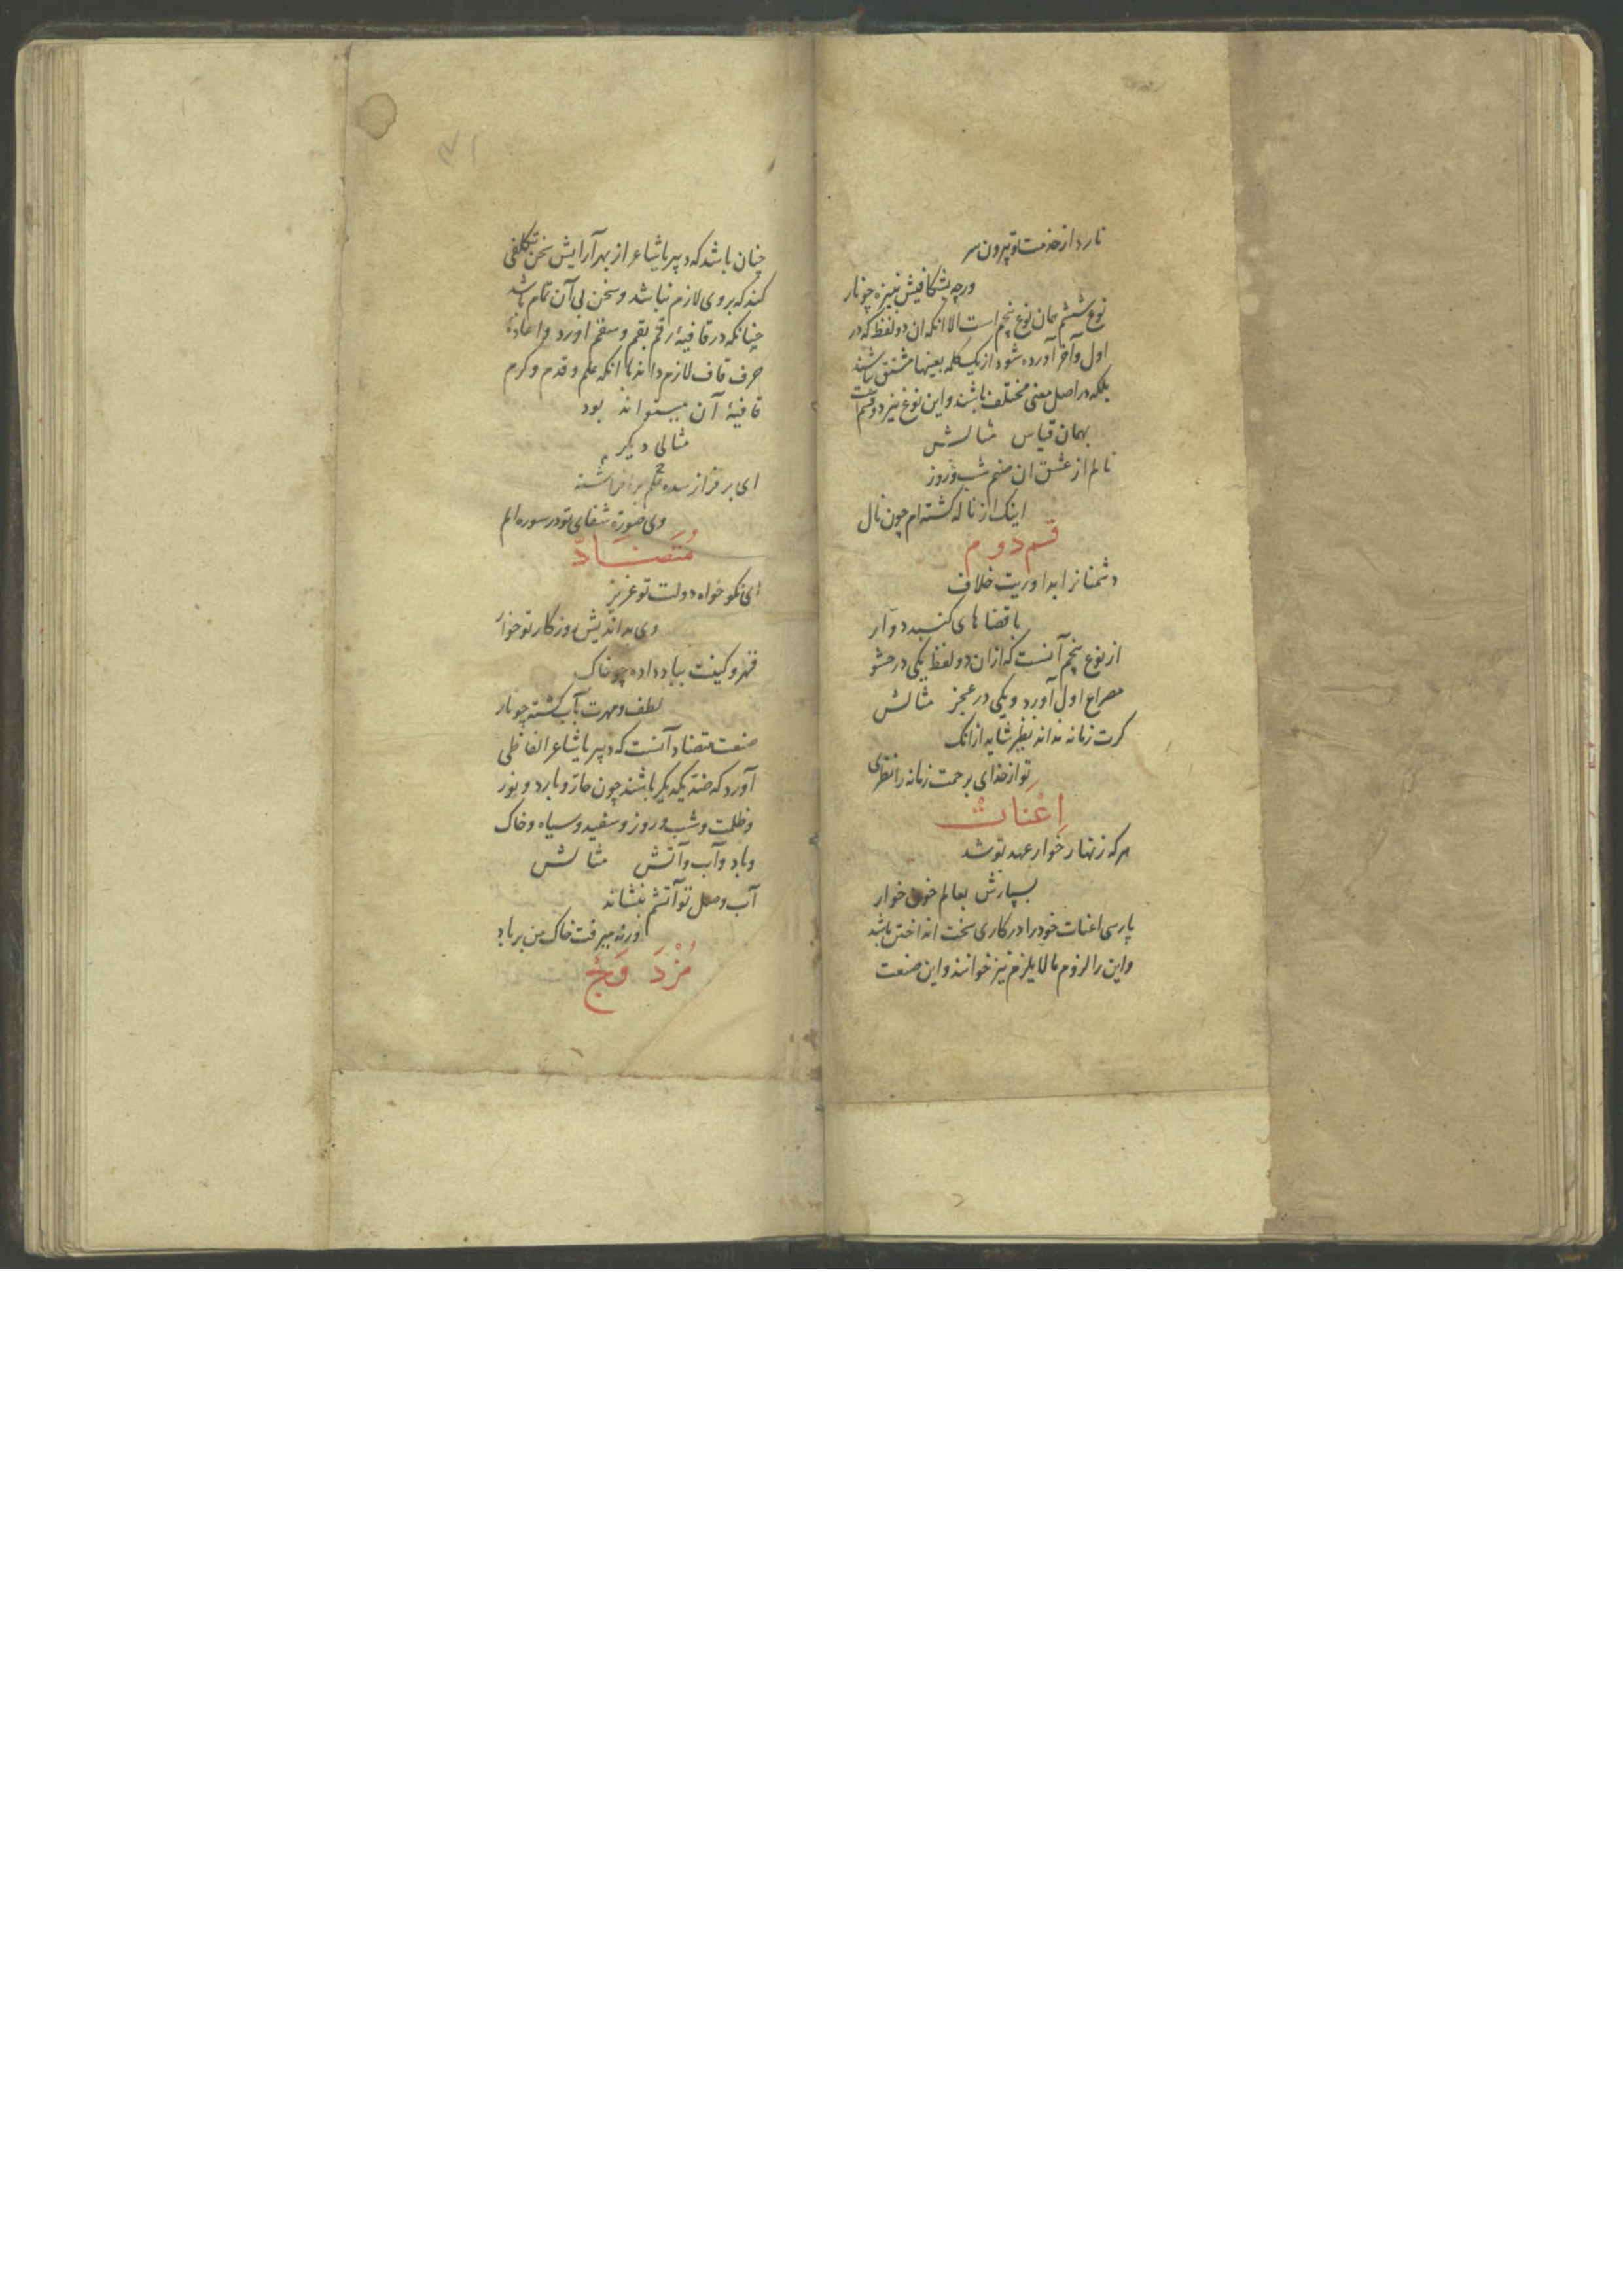 نارد از خدمت تو بیرون سر
ورچه بشکافیش بنیزه چو نار
نوع ششم همان نوع پنجم است الا انکه ان دو لفظ که در
اول و آخر آورده شود از یک کلمه بعینها مشتق نباشند
بلکه در اصل معنی مختلف باشند و این نوع نیز دو قسم است
بهمان قیاس مثالش
نالم از عشق ان صنم شب و روز
اینک از ناله کشته ام چون نال
قسم دوم
دشمنانرا بداوریت خلاف
با قضاهای کنبد دوّار
از نوع پنجم آنست که ازان دو لفظ یکی در حشو
مصراع اول آورد و یکی در عجز مثالش
کرت زمانه نداند نظیر شاید ازانک
تو از خدای برحمت زمانه را نظری
اِعْنَاتْ
هر که زنهار خوار عهد تو شد
بسپارش بعالم خون خوار
پارسی اعنات خود را در کاری سخت انداختن باشد
و این را لزوم مالایلزم نیز خوانند و این صنعت
۷۱
چنان باشد که دبیر یا شاعر از بهر آرایش سخن تکلفی
کند که بر وی لازم نباشد و سخن بی آن تمام باشد
چنانکه در قافیهٔ رقم بقم و سقم اورد و اعادهٔ
حرف قاف لازم داند با انکه علم و قدم و کرم
قافیهٔ آن میتواند بود
مثالی دیکر
ای بر فراز سده علم بر افراشته
وی صورة شفای تو در سوره الم
مُتَضَادّ
ای نکو خواه دولت تو عزیز
وی بد اندیش روزکار تو خوار
قهر و کینت بباد داده چو خاک
لطف و مهرت بآب کشته چو نار
صنعت متضاد آنست که دبیر یا شاعر الفاظی
آورد که ضد یکدیکر باشند چون حار و بارد و نور
و ظلمت و شب و روز و سفید و سیاه و خاک
و باد و آب و آتش مثالش
آب وصل تو آتشم بنشاند
ورنه میرفت خاک من بر باد
مُزْدَوَجْ